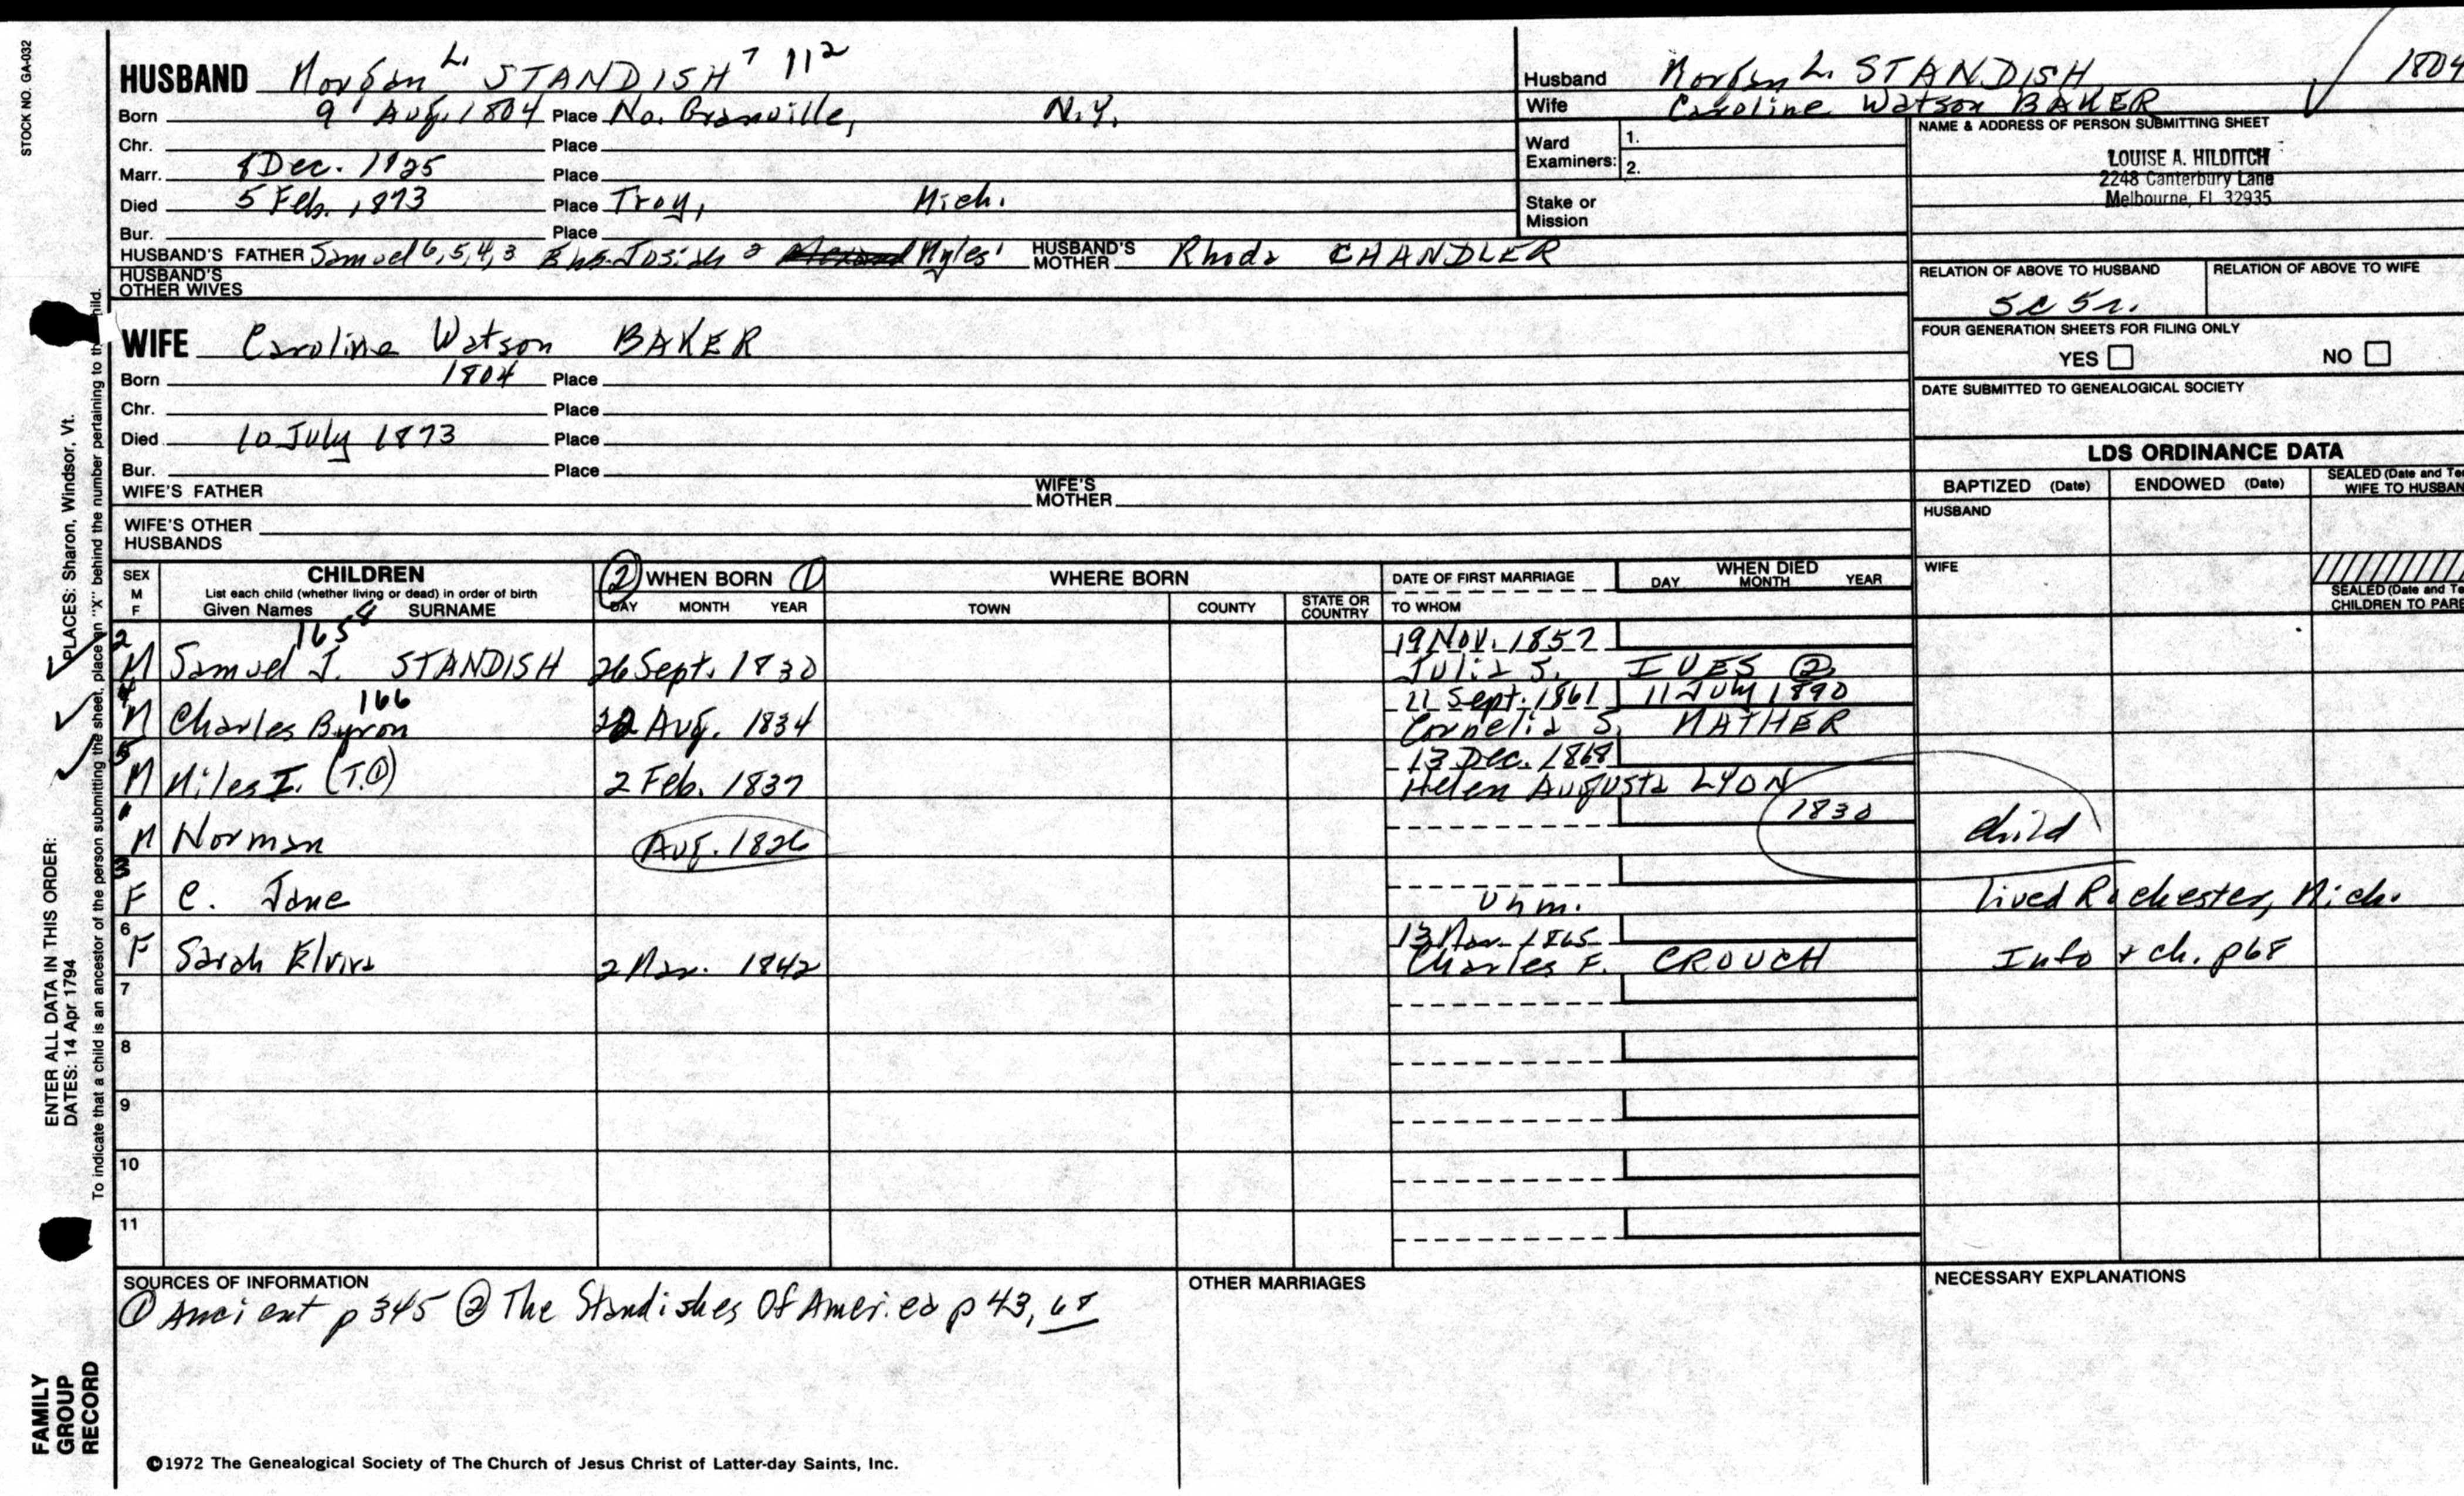 STOCK NO. GA-032
HUSBAND Morgan L. STANDISH 7 112
Born 9 Aug. 1804 Place No. Granville, N.Y.
Chr. Place
Marr. 8 Dec. 1825 Place
Died 5 Feb. 1873 Place Troy, Mich.
Bur. Place
HUSBAND'S FATHER Samuel 6,5,4,3 Ens. Josiah 2 Myles 1 HUSBAND'S MOTHER Rhoda CHANDLER
HUSBAND'S OTHER WIVES
WIFE Caroline Watson BAKER
Born 1804 Place
Chr. Place
Died 10 July 1873 Place
Bur. Place
WIFE'S FATHER WIFE'S MOTHER
WIFE'S OTHER HUSBANDS
Husband Morgan L. STANDISH 1804
Wife Caroline Watson BAKER
Ward Examiners: 1.
2.
Stake or Mission
NAME & ADDRESS OF PERSON SUBMITTING SHEET
LOUISE A. HILDITCH
2248 Canterbury Lane
Melbourne, FL 32935
RELATION OF ABOVE TO HUSBAND RELATION OF ABOVE TO WIFE
5c 5r.
FOUR GENERATION SHEETS FOR FILING ONLY
YES NO
DATE SUBMITTED TO GENEALOGICAL SOCIETY
LDS ORDINANCE DATA
BAPTIZED (Date) ENDOWED (Date) SEALED (Date and Te
WIFE TO HUSBAN
HUSBAND
WIFE
SEALED (Date and Te
CHILDREN TO PARE
SEX M F CHILDREN
List each child (whether living or dead) in order of birth
Given Names SURNAME
② WHEN BORN ①
DAY MONTH YEAR
WHERE BORN
TOWN COUNTY STATE OR COUNTRY
DATE OF FIRST MARRIAGE
TO WHOM
WHEN DIED
DAY MONTH YEAR
2 165 19 Nov. 1857
M Samuel J. STANDISH 26 Sept. 1830 Julia S. IVES ②
4 166 11 July 1890
M Charles Byron 22 Aug. 1834 Cornelia S. MATHER
5 13 Dec. 1868
M Miles I. (T.①) 2 Feb. 1837 Helen Augusta LYON
1 1830
M Norman Aug. 1826 child
3
F C. Jane Unm. lived Rochester, Mich.
6 13 1865
F Sarah Elvira 2 Mar. 1842 Charles F. CROUCH Info + ch. p68
7
8
9
10
11
SOURCES OF INFORMATION
① Ancient p 345 ② The Standishes Of America p 43, 68
OTHER MARRIAGES
NECESSARY EXPLANATIONS
©1972 The Genealogical Society of The Church of Jesus Christ of Latter-day Saints, Inc.
FAMILY GROUP RECORD
ENTER ALL DATA IN THIS ORDER:
DATES: 14 Apr 1794
PLACES: Sharon, Windsor, Vt.
To indicate that a child is an ancestor of the person submitting the sheet, place an "X" behind the number pertaining to th child.